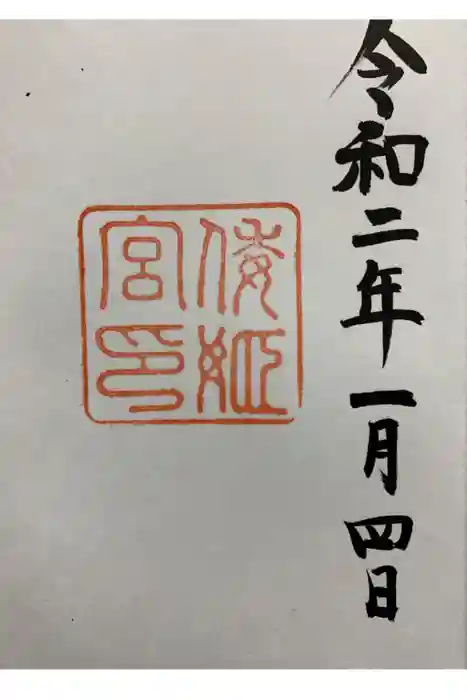 令和二年一月四日
倭姫
宮印